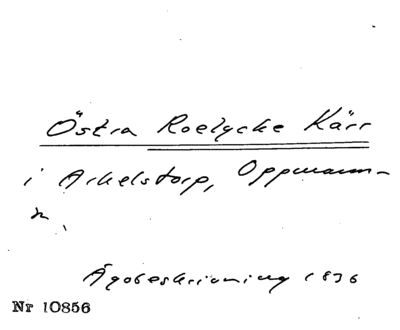 Östra Roelycke Kärr
i Arkelstorp, Oppmann-
n.
Ägobeskrivning 1836
Nr 10856